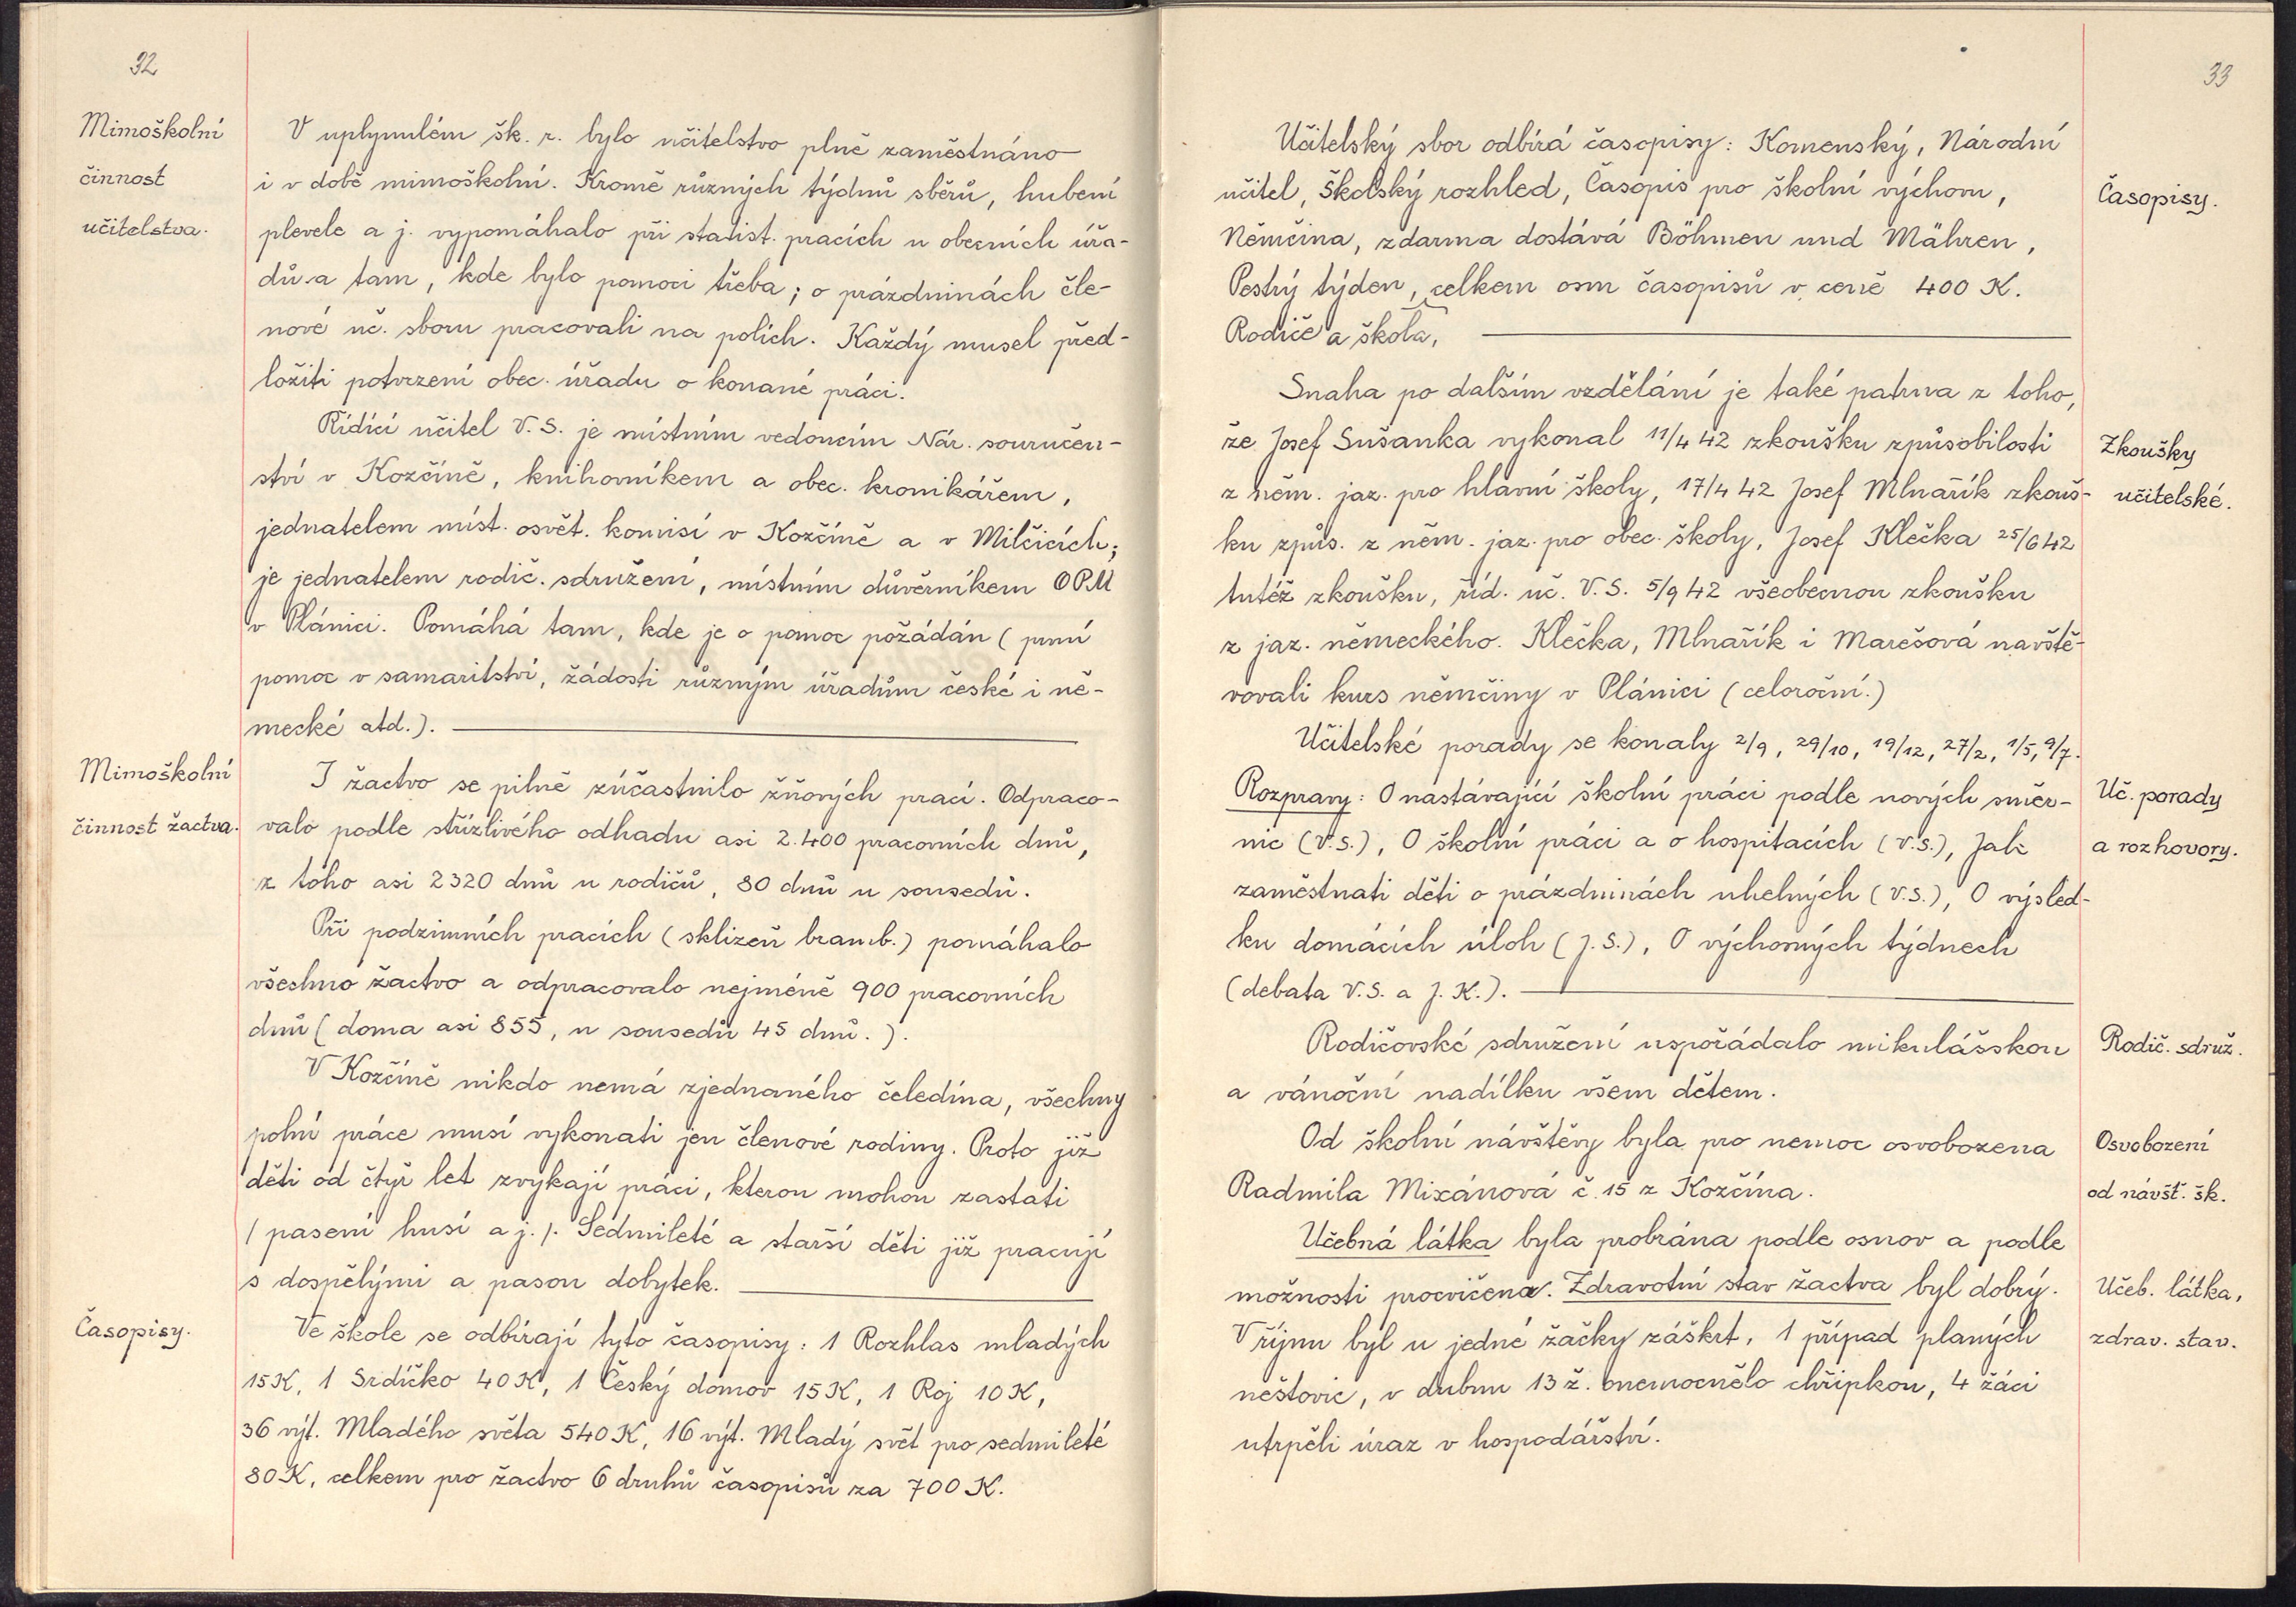 32
Mimoškolní
činnost
učitelstva.
V uplynulém šk. r. bylo učitelstvo plně zaměstnáno
i v době mimoškolní. Kromě různých týdnů sběrů, hubení
plevele a j. vypomáhalo při statist. pracích u obecních úřa-
dů a tam, kde bylo pomoci třeba; o prázdninách čle-
nové uč. sboru pracovali na polích. Každý musel před-
ložiti potvrzení obec. úřadu o konané práci.
Řídící učitel V. S. je místním vedoucím Nár. souručen-
ství v Kozčíně, knihovníkem a obec. kronikářem,
jednatelem míst. osvět. komisí v Kozčíně a v Milčicích;
je jednatelem rodič. sdružení, místním důvěrníkem OPM
v Plánici. Pomáhá tam, kde je o pomoc požádán (první
pomoc v samaritství, žádosti různým úřadům české i ně-
mecké atd.).
Mimoškolní
činnost žactva.
I žactvo se pilně zúčastnilo žňových prací. Odpraco-
valo podle střízlivého odhadu asi 2.400 pracovních dnů,
z toho asi 2320 dnů u rodičů, 80 dnů u sousedů.
Při podzimních pracích (sklizeň bramb.) pomáhalo
všechno žactvo a odpracovalo nejméně 900 pracovních
dnů (doma asi 855, u sousedů 45 dnů.).
V Kozčíně nikdo nemá zjednaného čeledína, všechny
polní práce musí vykonati jen členové rodiny. Proto již
děti od čtyř let zvykají práci, kterou mohou zastati
/pasení husí a j./. Sedmileté a starší děti již pracují
s dospělými a pasou dobytek.
Časopisy.
Ve škole se odbírají tyto časopisy: 1 Rozhlas mladých
15K, 1 Srdíčko 40K, 1 Český domov 15K, 1 Roj 10K,
36 výt. Mladého světa 540K, 16 výt. Mladý svět pro sedmileté
80K, celkem pro žactvo 6 druhů časopisů za 700K.
33
Učitelský sbor odbírá časopisy: Komenský, Národní
učitel, Školský rozhled, Časopis pro školní výchovu,
Němčina, zdarma dostává Böhmen und Mähren,
Pestrý týden, celkem osm časopisů v ceně 400 K.
Rodiče a škola,
Časopisy.
Snaha po dalším vzdělání je také patrna z toho,
že Josef Sušanka vykonal 11/4 42 zkoušku způsobilosti
z něm. jaz. pro hlavní školy, 17/4 42 Josef Mlnařík zkouš-
ku způs. z něm. jaz. pro obec. školy, Josef Klečka 25/6 42
tutéž zkoušku, říd. uč. V. S. 5/9 42 všeobecnou zkoušku
z jaz. německého. Klečka, Mlnařík i Marešová navště-
vovali kurs němčiny v Plánici (celoroční.)
Zkoušky
učitelské.
Učitelské porady se konaly 2/9, 29/10, 19/12, 27/2, 1/5, 9/7.
Rozpravy: O nastávající školní práci podle nových směr-
nic (V.S.), O školní práci a o hospitacích (V.S.), Jak
zaměstnati děti o prázdninách uhelných (V.S.), O výsled-
ku domácích úloh (J.S.), O výchovných týdnech
(debata V.S. a J.K.).
Uč. porady
a rozhovory.
Rodičovské sdružení uspořádalo mikulášskou
a vánoční nadílku všem dětem.
Rodič. sdruž.
Od školní návštěvy byla pro nemoc osvobozena
Radmila Mixánová č. 15 z Kozčína.
Osvobození
od návšt. šk.
Učebná látka byla probrána podle osnov a podle
možnosti procvičena. Zdravotní stav žactva byl dobrý.
V říjnu byl u jedné žačky záškrt, 1 případ planých
neštovic, v dubnu 13 ž. onemocnělo chřipkou, 4 žáci
utrpěli úraz v hospodářství.
Učeb. látka,
zdrav. stav.